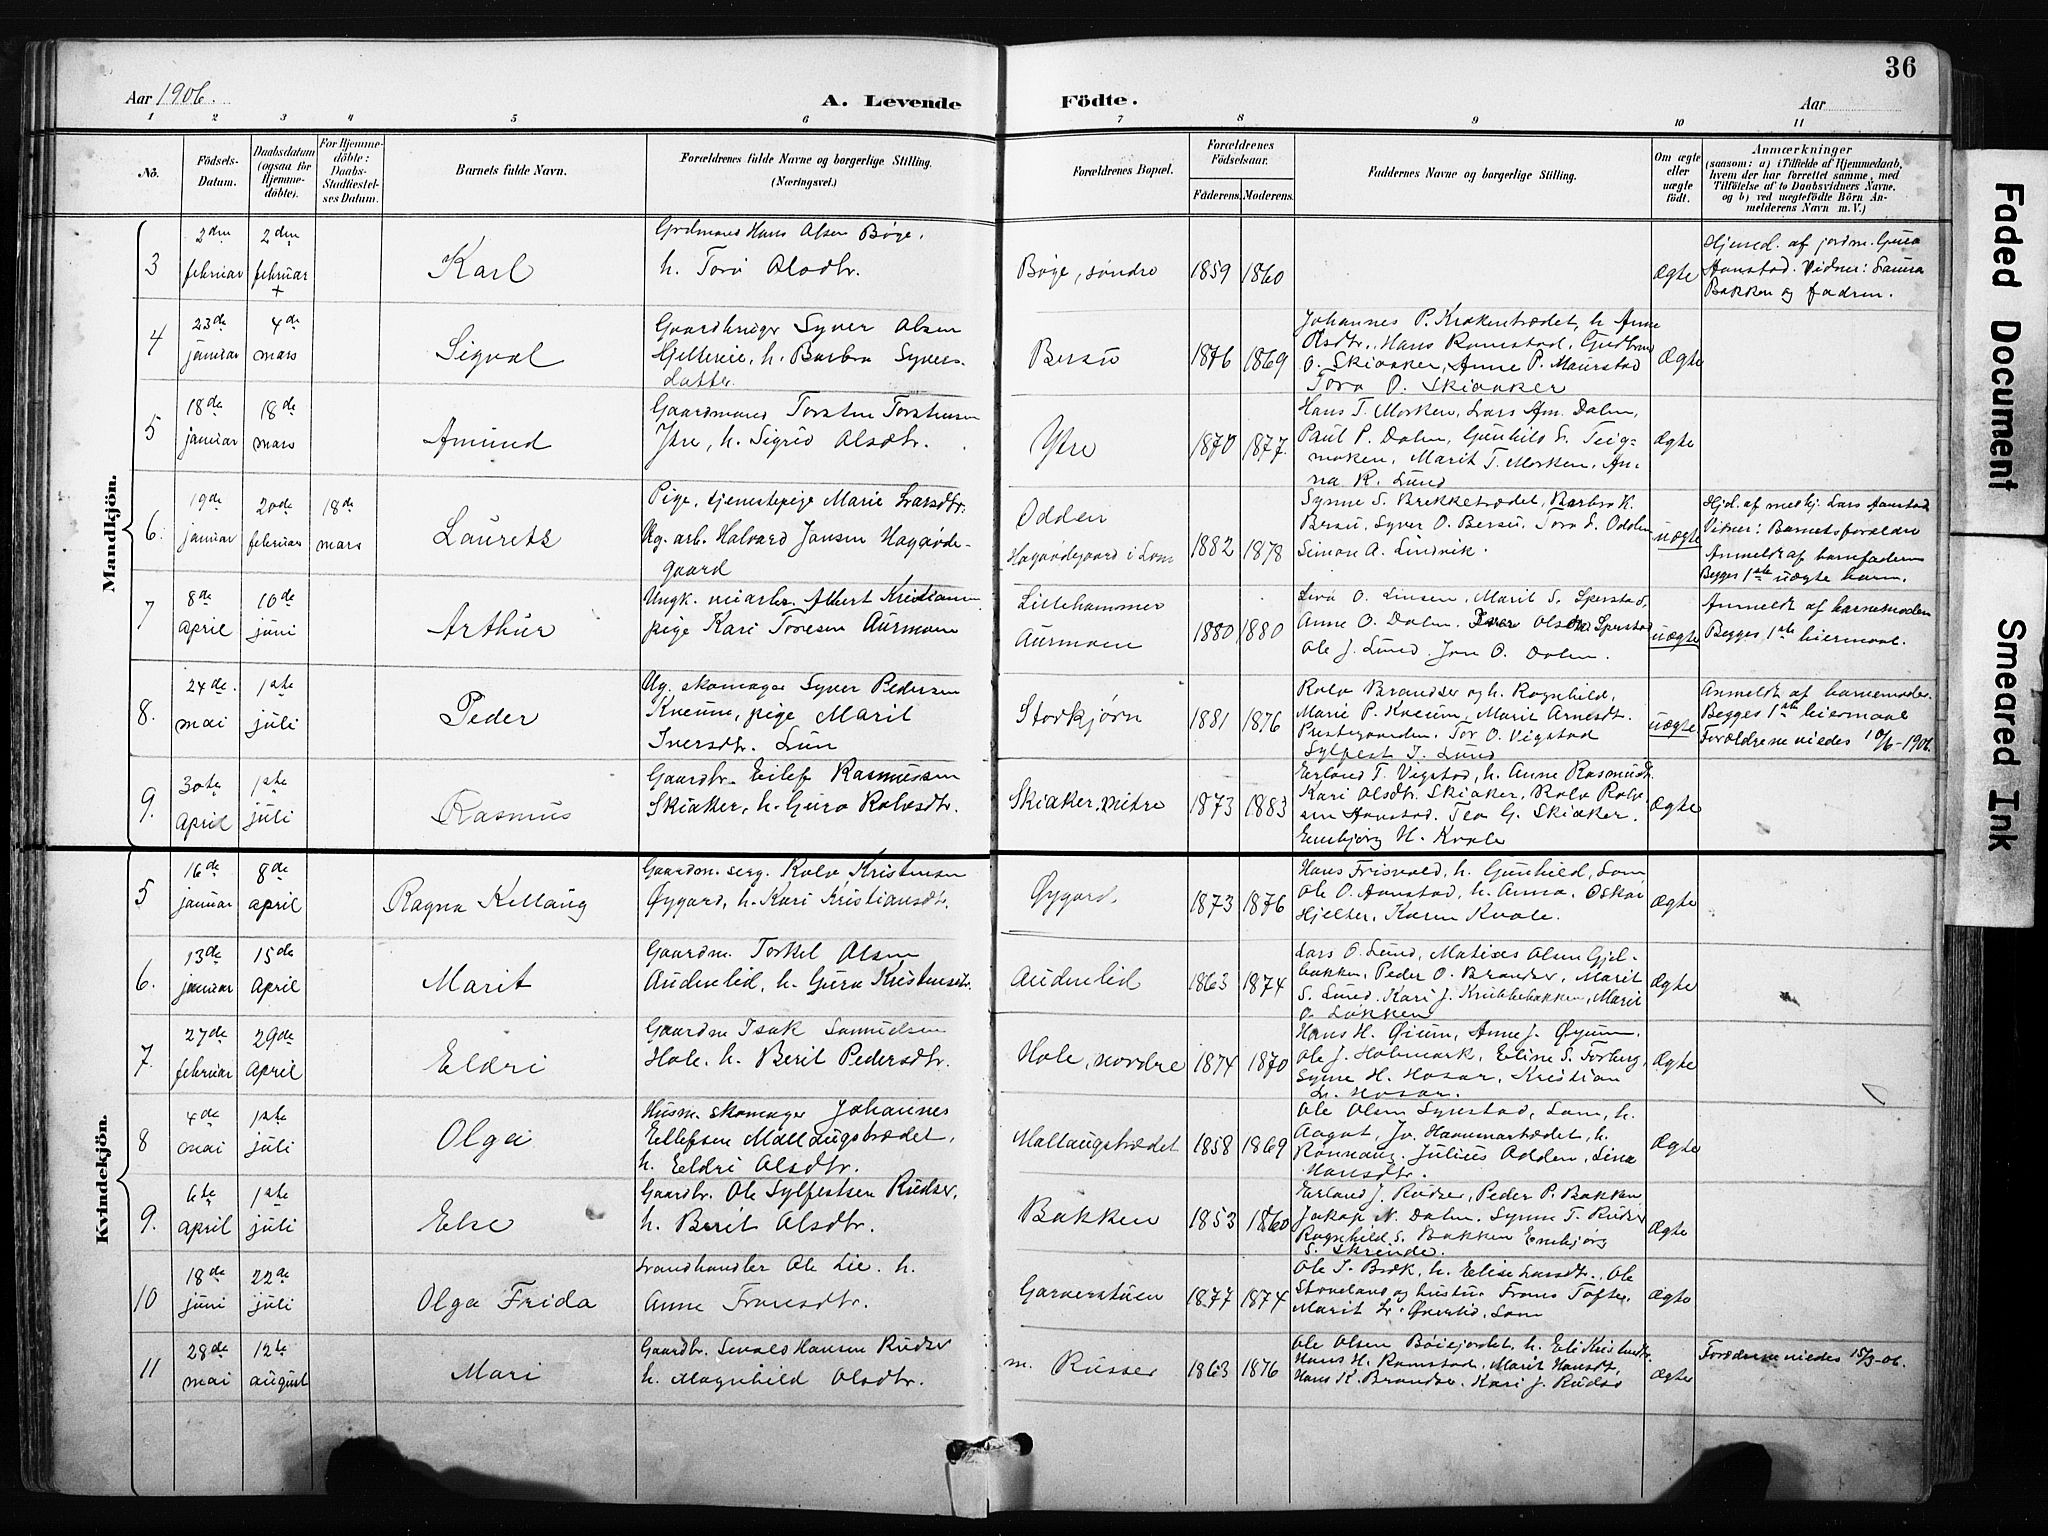 36
Aar 1906.
A. Levende Födte.
Aar
1 2 3 4 5 6 7 8 9 10 11
No.
Födsels-Datum.
Daabsdatum (ogsaa for Hjemme-döbte).
For Hjemme-döbte: Daabs-Stadfæstel-ses Datum.
Barnets fulde Navn.
Forældrenes fulde Navne og borgerlige Stilling.
(Næringsvei.)
Forældrenes Bopæl.
Forældrenes Födselsaar.
Faderens. Moderens.
Faddernes Navne og borgerlige Stilling.
Om ægte eller uægte födt.
Anmærkninger
(saasom: a) i Tilfælde af Hjemmedaab,
hvem der har forrettet samme, med
Tilföielse af to Daabsvidners Navne.
og b) ved uægtefödte Börn An-
melderens Navn m. V.)
Mandkjön.
3
2den februar
2den februar +
Karl
Grdmand Hans Olsen Bøye.
h. Tora Olsdtr.
Bøye, søndre
1859 1860
Ægte
Hjemd. af jordm. Guro
Aanstad. Vidner:
Bakken og fadren.
4
23de januar
4de mars
Sigval
Gaardbruger Syver Olsen
h. Barbra Syvers-
datter
Bersu
1876 1869
Johannes P. Krokentrædet, h. Anne
Olsdtr., Hans Ramstad, Gudbrand
O. Skiaaker, Anne P. Maurstad
Tora O. Skiaaker
Ægte
5
18de januar
18de mars
Amund
Gaardmand Torsten Torstensen
Ytre, h. Sigrid Olsdtr.
Ytre
1870 1877.
Hans T. Morken, Lars Am. Dalen,
Paul P. Dalen, Gunhild S. Teig-
moken, Marit T. Morken, An-
na K. Lund
Ægte
6.
19de januar
20de februar
18de mars
Laurets
Pige, tjenestepige Marie Larsdtr.
Ug. arb. Halvard Jansen Hagaøde-
gaard
Odden
Hagaødegaard i Lom
1882 1878
Synne S. Brekketrædet, Barbro K.
Bersu, Syver O. Bersu, Tora S. Odden
Simon A. Lindvik.
uægte
Hjd. af medhj. Lars Aanstad
Vitner: Barnets foreldre
Anmeldt af barnefaderen
Begges 1ste uægte barn.
7
8de april
10de juni
Arthur
Ungk. Albert Kristiansen
pige Kari Toresen Aurmoen
Lillehammer
Aurmoen
1880 1880
O. Linsen, Marit S. Sperstad,
Anne O. Dalen. Sperstad
Ole J. Lund. Jon O. Dalen.
uægte
Anmeldt af barnemoderen
Begges 1ste leiermaal.
8.
24de mai
1ste juli
Peder
Ug. skomager Syver Pedersen
Kveum, pige Marit
Iversdtr. Lun
Storkjørn
1881 1876
Rolv Brandser og h. Ragnhild,
Marie P. Kveum, Marit Arnesdtr.
Prestegarden. Tor O. Vigstad
Sylfest I. Lund
uægte
Anmeldt af barnemoder.
Begges 1ste leiermaal
Forældrene viedes 10/6-1906.
9.
30te April
1ste juli
Rasmus
Gaardbr. Eilef Rasmussen
Skiaker, h. Guro Rolvsdtr.
Skiaker, mitre
1873 1883
Erland T. Vigstad, h. Anne Rasmusdtr.
Kari Olsdtr. Skiaker, Rolv Rolv-
sen Aanstad. Tea G. Skiaker.
Embjørg H. Kvale
Ægte
Kvindekjön.
5
16de januar
8de april
Ragna Kellaug
Gaardm. serg. Rolv Kristensen
Øygard, h. Kari Kristiansdtr.
Øygard.
1873 1876
Hans Frisvold, h. Gunhild, Lom
Ole O. Aanstad, h. Anna. Oskar
Hjelter, Karen Kvale.
Ægte
6.
13de januar
15de April
Marit
Gaardm. Torkel Olsen
Audenlid, h. Guro Kristensdtr.
Audenlid
1863 1874
Lars O. Lund, Matias Olsen Gjel-
bakken, Peder O. Brandser, Marit
S. Lund. Kari J. Krubbebakken, Marit
O. Løkken
Ægte
7.
27de februar
29de April
Eldri
Gaardm Isak Samuelsen
Hole. h. Berit Pedersdtr.
Hole, nordre
1874 1870
Hans H. Øium, Anne J. Øyum.
Ole J. Holmark, Eline S. Forberg,
Synne H. Hosar, Kristian
L. Hosar.
Ægte
8
4de mai
1ste juli
Olga
Husm. skomager Johannes
Ellefsen Mallaugstrædet,
h. Eldri Olsdtr.
Mallaugstrædet
1858 1869
Ole Olsen Synstad, Lom, h.
Aagot, Jo Hammartrædet, h.
Rønnaug. Julius Odden, Lina
Hansdtr.
Ægte
9.
6te april
1ste juli
Else
Gaardbr. Ole Sylfestsen Rudser,
h. Berit Olsdtr.
Bakken
1853 1860
Erland J. Rudser, Peder P. Bakken
Jakop N. Dalen. Synne T. Rudser
Ragnhild S. Bakken Embjørg
S. Skrinde.
Ægte
10
18de juni
22de juli
Olga Frida
Landhandler Ole Lie. h.
Anne Fransdtr.
Garverstuen
1877 1874
Ole T. Bræk, h. Elise Larsdtr., Ole
Stoveland og hustru. Frans Tofte.
Marit L. Øverlid, Lom
Ægte
11
28de mai
12te august
Mari
Gaardbr. Hansen Rudser
h. Magnhild Olsdtr.
m. Russer
1863 1876
Ole Olsen Bøiejordet, h. Eli Kristensdtr.
Hans H. Ramstad, Marit Hansdtr,
Hans K. Brandser. Kari J. Rudse
Ægte
Foreldrene viedes 15/3-06.
Faded Document
Smeared Ink